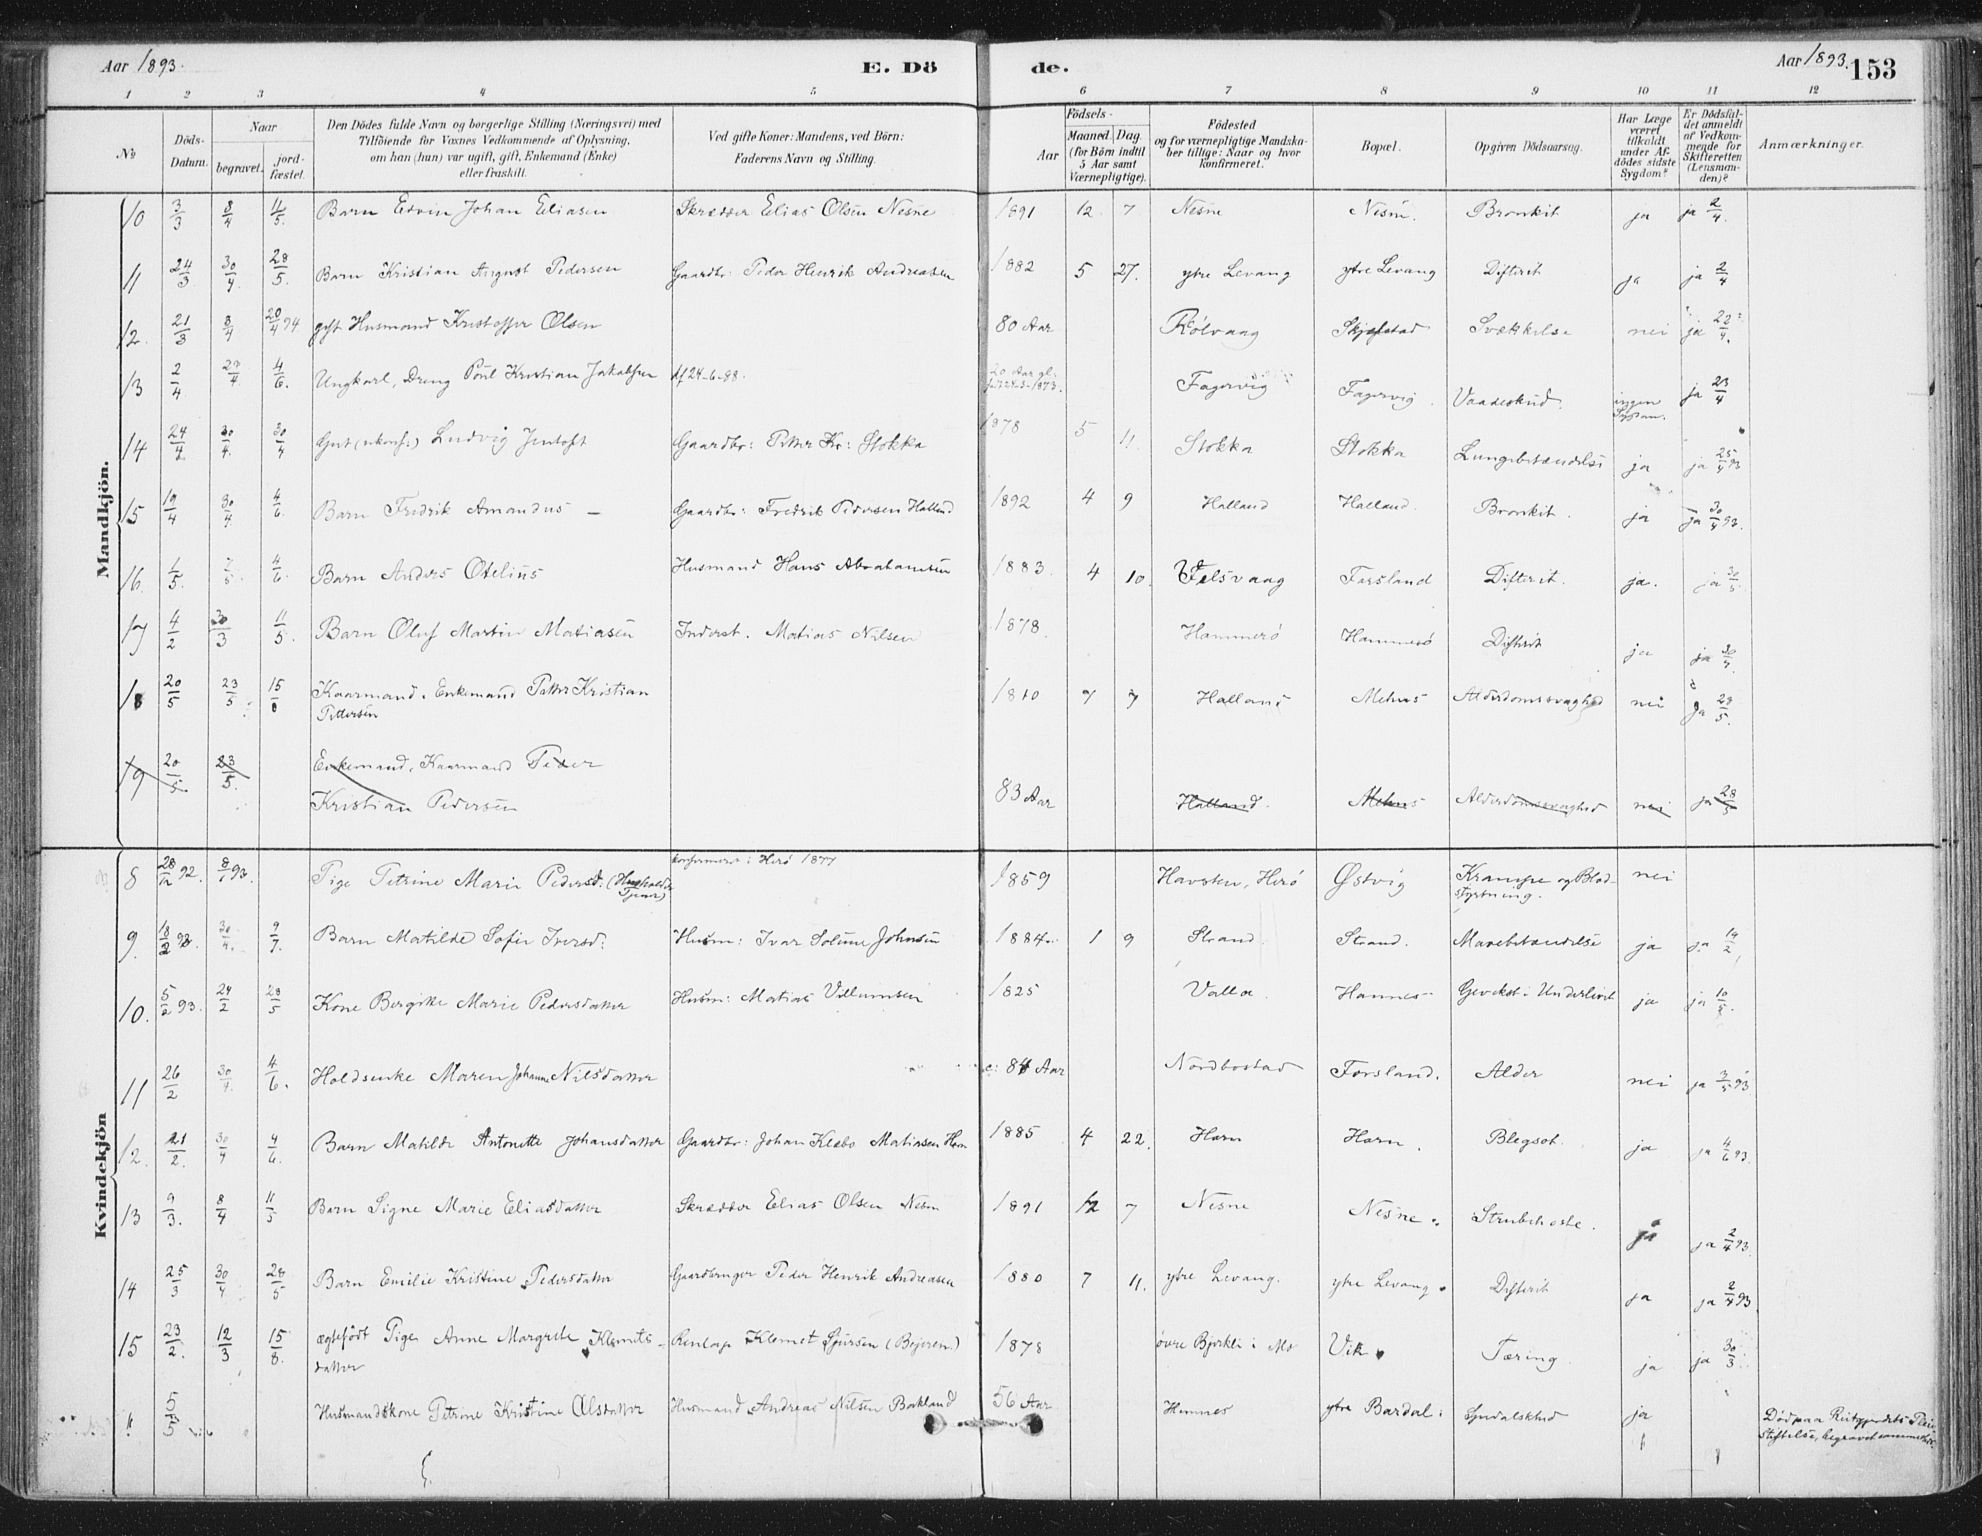 Aar 1893. E. Dö de. Aar 1893. 153
1 2 3 4 5 6 7 8 9 10 11 12
No Döds-Datum. Naar begravet. jord-fæstet. Den Dödes fulde Navn og borgerlige Stilling (Næringsvei) med Tilföiende for Voxnes Vedkommende af Oplysning, om han (hun) var ugift, gift, Enkemand (Enke) eller fraskilt. Ved gifte Koner: Mandens, ved Börn: Faderens Navn og Stilling. Födsels- Aar Maaned. Dag. (for Börn indtil 5 Aar samt Værnepligtige). Födested og for værnepligtige Mandskaber tillige: Naar og hvor konfirmeret. Bopæl. Opgiven Dödsaarsag. Har Læge været tilkaldt under Afdödes sidste Sygdom? Er Dödsfaldet anmeldt af Vedkommende for Skifteretten (Lensmanden)? Anmærkninger.
Mandkjön.
10 3/3 8/4 11/5. Barn Edvin Johan Eliasen Skrædder Elias Olsen Nesne 1891 12 7 Nesne Nesne. Bronkit ja ja 2/4.
11 24/3 30/4 28/5. Barn Kristian August Pedersen Gaardbr: Peder Henrik Andreasen 1882 5 27. ytre Levang ytre Levang Difterit ja ja 2/4
12. 21/3 8/4 20/4 94 gift Husmand Kristoffer Olsen 80 Aar Rölvaag Skjefstad Svækkelse nei ja 22/4.
13 2/4 4/6. Ungkarl, Dreng Poul Kristian Jakobsen df 24-6-88. 20 Aar gl. Fagervig Fagervig. Vaadeskud. ingen Sygdom. ja 23/4
14 24/4 30/4. 30/4 Gut (ukonf:) Ludvig Jentoft Gaardbr: Petter Kr: Stokka 1878 5 11 Stokka Stokka Lungebetændelse ja ja 25/4 93
15 19/4 30/4 4/6. Barn Fredrik Amandus — Gaardbr: Fredrik Pedersen Halland 1892 4 9 Halland Halland. Bronkit. ja ja 30/4 93.
16. 1/5. 7/5. 4/6. Barn Anders Otelius Husmand Hans Abrahamsen 1883. 4 10. Felsvaag Forsland Difterit. ja. ja 30/5.
17 4/2 30/3 11/5. Barn Oluf Martin Matiasen Inderst. Matias Nilsen 1878. Hammerö Hammerö Difterit ja ja 30/4.
18 20/5 23/5 15/8 Kaarmand. Enkemand Petter Kristian
Pettersen 1810 7 7 Halland Mehus Alderdomssvaghed nei ja 28/5.
19 20/5 23/5. Enkemand, Kaarmand Peder
Kristian Pedersen 83 Aar Halland. Mehus Alderdomssvaghed nei ja 28/5
Kvindekjön
konfirmeret i Herö 1877
8 28/12 92. 8/1 93. Pige Petrine Marie Pedersd: 1859 Havsten, Herö Østvig Krampe og Blodstyrtning. nei
9. 18/2 93. 30/4. 9/7. Barn Matilde Sofie Iversd: Husm: Ivar Solum Johnsen 1884. 1 9 Strand. Strand. Mavebetændelse ja ja 19/2,
10. 5/2 93. 24/2 28/5 Kone Bergitte Marie Pedersdatter Husm: Matias Villumsen 1825 Valla. Hannes Gevekst i Underlivet ja ja 10/2.
11 26/2 30/4 4/6. Holdsenke Maren Johanne Nilsdatter 84 Aar Nordbostad Forsland. Alder nei ja 3/5 93
12. 21/2. 30/4 4/6. Barn Matilde Antonette Johansdatter Gaardbr: Johan Klæbo Matiasen Horn 1885 4 22. Horn Horn. Blegsot. ja ja 4/6 93.
13 9/3. 8/4 11/5 Barn Signe Marie Eliasdatter Skrædder Elias Olsen Nesne 1891 12 7 Nesne Nesne. Strubehoste. ja ja 2/4 93.
14 25/3 30/4 28/5 Barn Emilie Kristine Pedersdatter Gaardbruger Peder Henrik Andreasen 1880 7 11. ytre Levang. ytre Levang. Difterit ja ja 2/4 93.
15 23/2. 12/3 15/8. ægtefödt Pige Anne Margrete Klemets-
datter Renlap Klemet Sjursen (Bejeren.) 1878 övre Bjerkli i Mo Vik Tæring. ja ja 30/3
" 5/5 Husmandskone Petrine Kristine Olsdatter Husmand Andreas Nilsen Barkland 56 Aar Hemnes ytre Bardal: Spedalskhed ja Död paa Reitgjerdets Pleie
Stiftelse, begravet sammesteds.